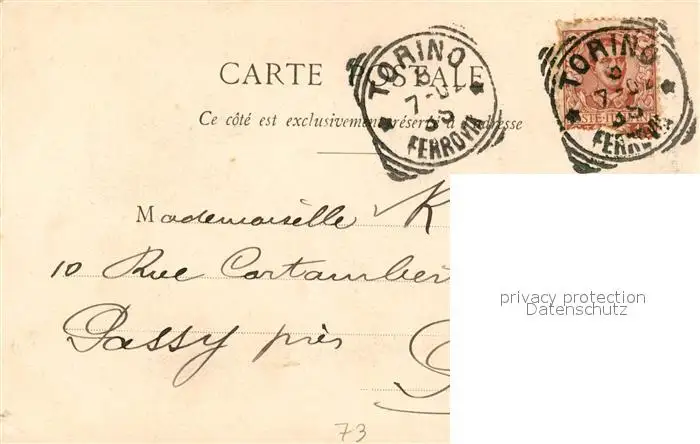 CARTE POSTALE
Ce côté est exclusivement réservé à l'adresse
TORINO
6
7-02
FERROVIA
TORINO
6
7-02
FERROVIA
Mademoiselle K
10 Rue Cortambert
Passy près
privacy protection
Datenschutz
73